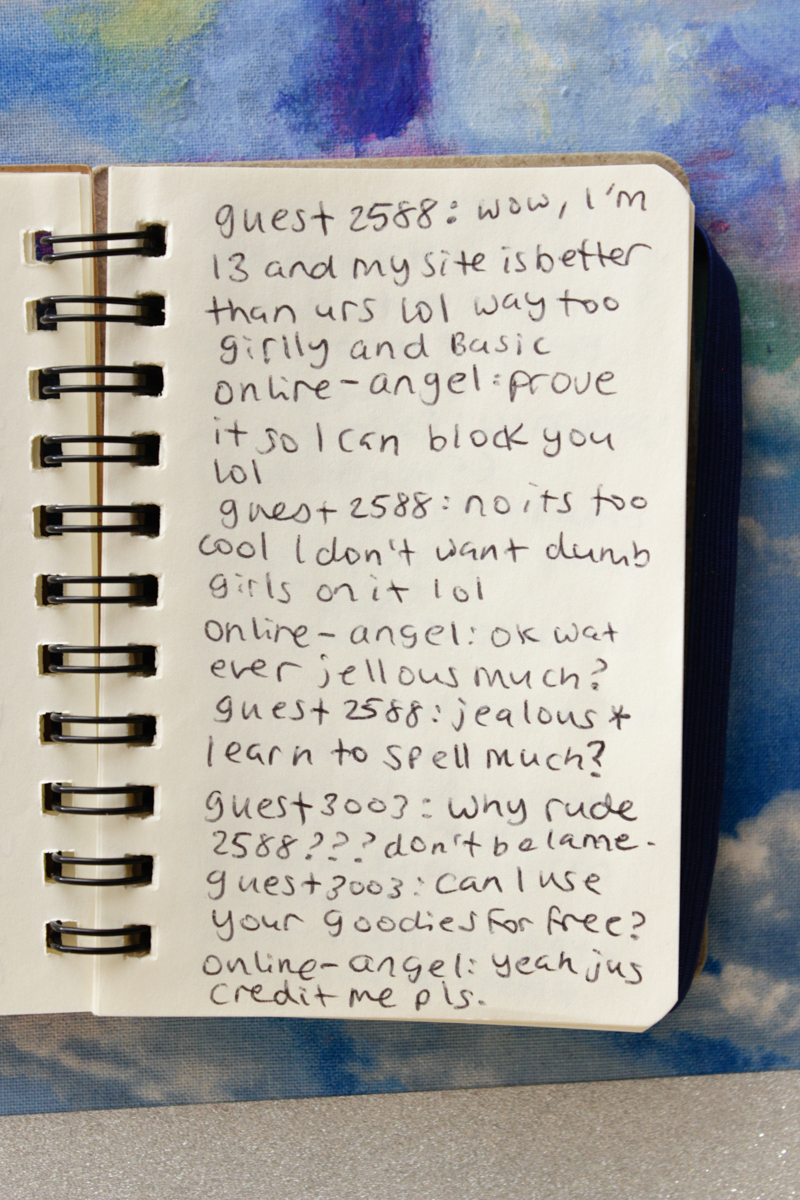 guest 2588: wow, I'm
13 and my site is better
than urs lol way too
girlly and Basic
online-angel: prove
it so I can block you
lol
guest 2588: no its too
cool I don't want dumb
girls on it lol
online-angel: ok wat
ever jellous much?
guest 2588: jealous*
learn to spell much?
guest 3003: why rude
2588??? don't be lame.
guest 3003: can I use
your goodies for free?
online-angel: yeah jus
credit me pls.